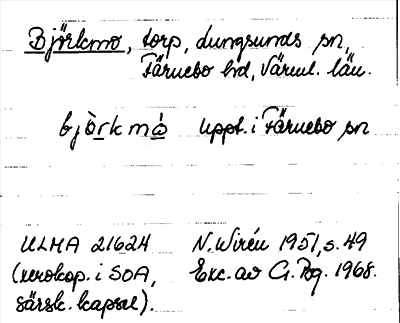 Björkmo, torp, Lungsunds sn,
Färnebo hd, Värml. län.
bjö̀rkmó uppt. i Färnebo sn
ULMA 21624 N. Wirén 1951, s. 49
(xerokop. i SOA, Exc. av G. Rg. 1968.
särsk. kapsel).